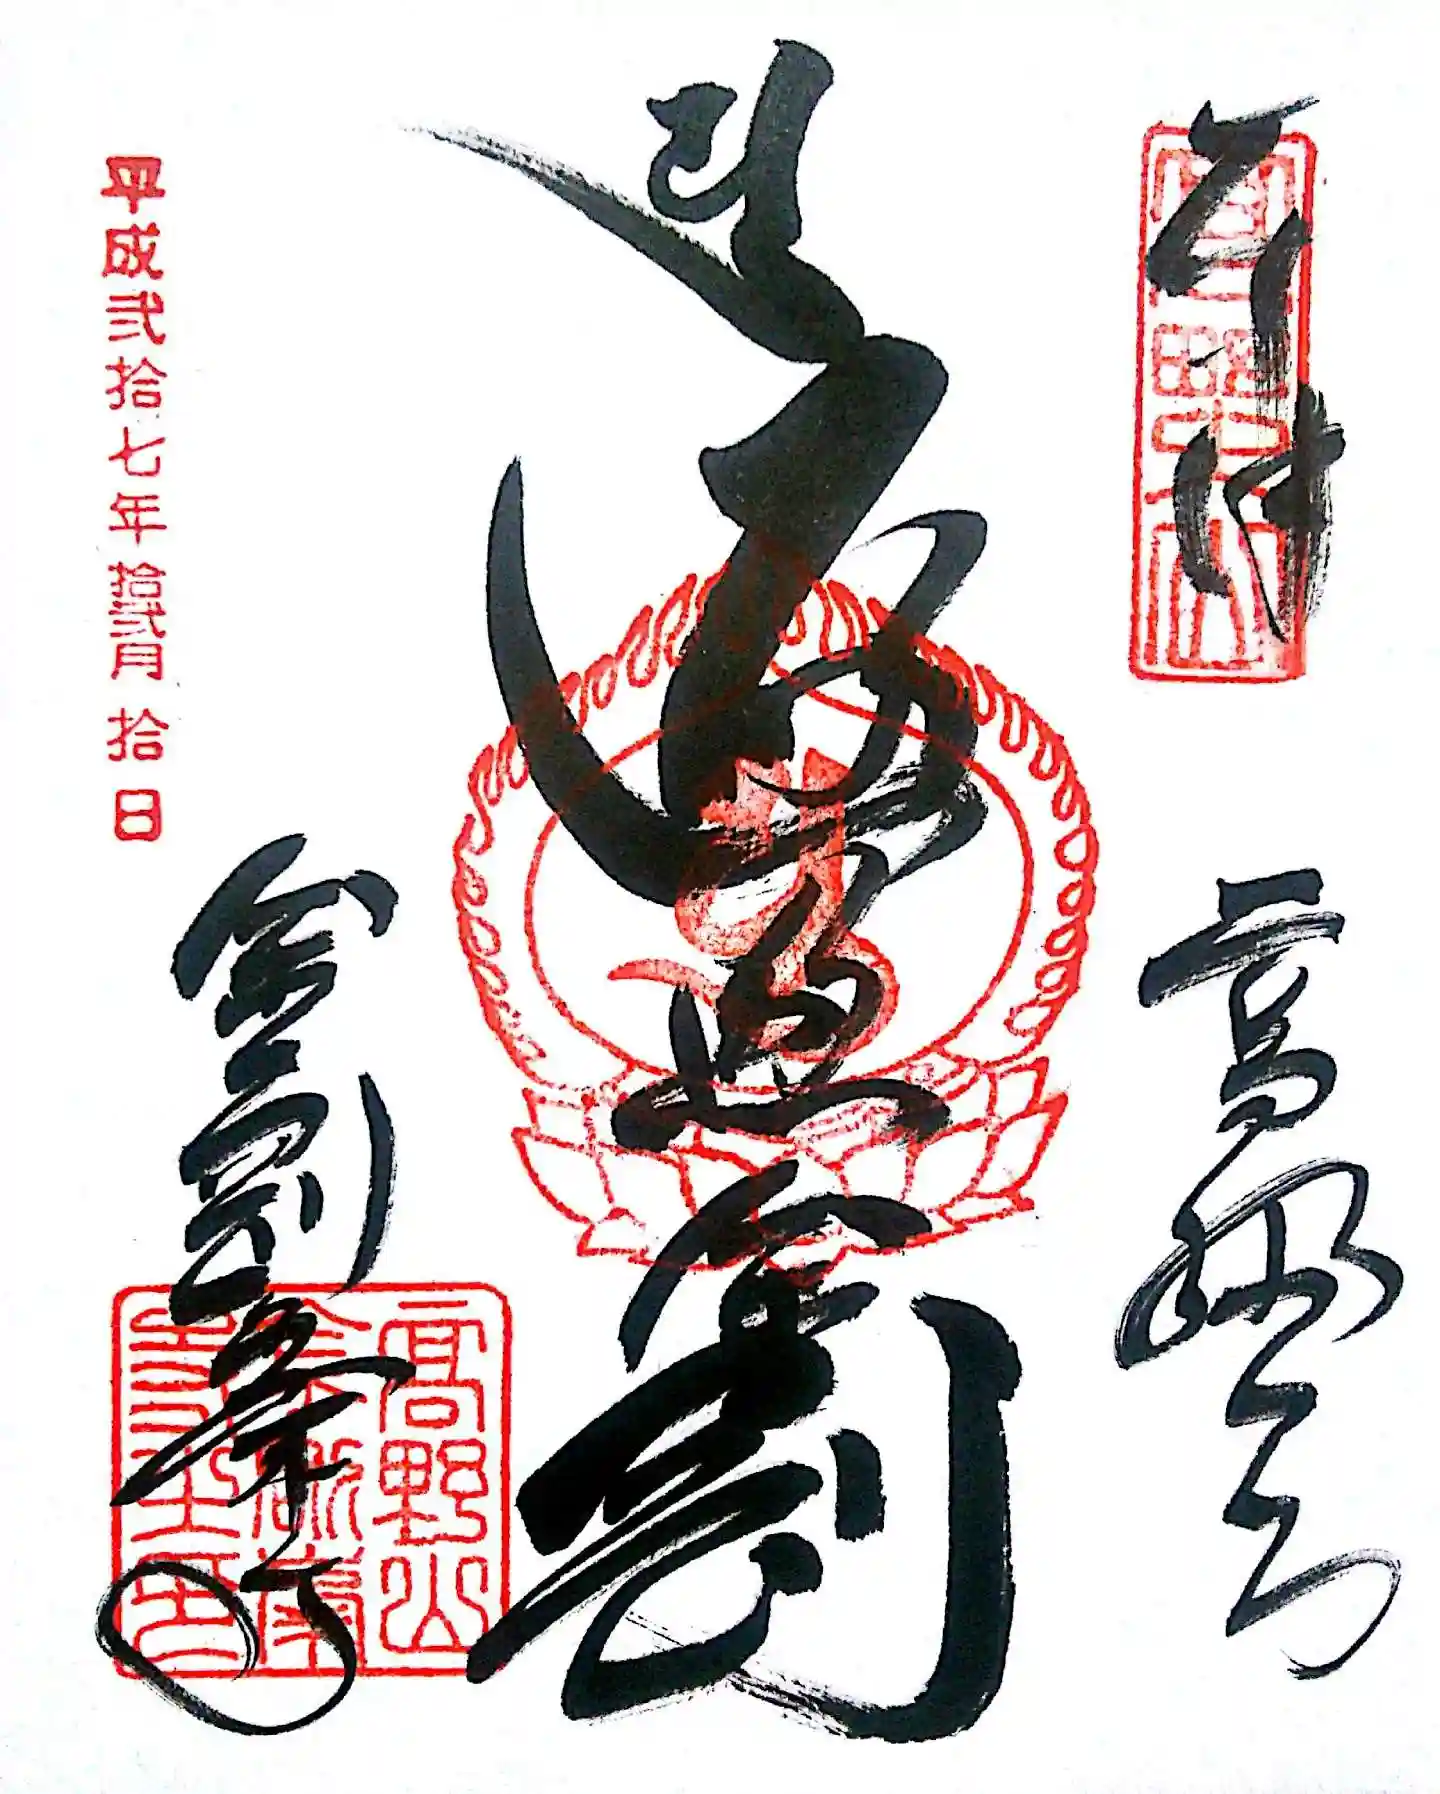 奉拝
高野山
遍照金剛
平成弐拾七年拾弐月拾日
金剛峯寺
高野山
金剛峯
寺之印